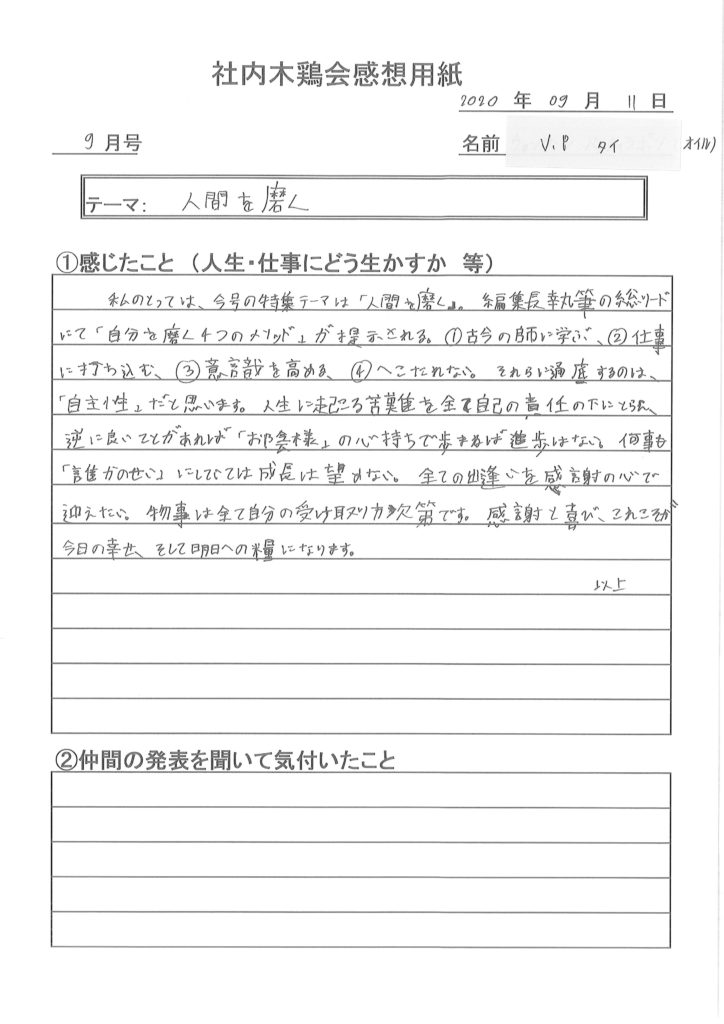 社内木鶏会感想用紙
2020 年 09 月 11 日
9 月号
名前 V.P タイ (オイル)
テーマ: 人間を磨く
①感じたこと （人生・仕事にどう生かすか 等）
私のとっては、今号の特集テーマは「人間を磨く」。編集長執筆の総リード
にて「自分を磨く4つのメソッド」が提示される。①古今の師に学ぶ、②仕事
に打ち込む、③意識を高める、④へこたれない。それらに通底するのは、
「自主性」だと思います。人生に起こる苦難を全て自己の責任の下にとらえ、
逆に良いことがあれば「お陰様」の心持ちで歩まねば進歩はない。何事も
「誰かのせい」にしていては成長は望めない。全ての出逢いを感謝の心で
迎えたい。物事は全て自分の受け取り方次第です。感謝と喜び、これこそが
今日の幸せ、そして明日への糧になります。
以上
②仲間の発表を聞いて気付いたこと